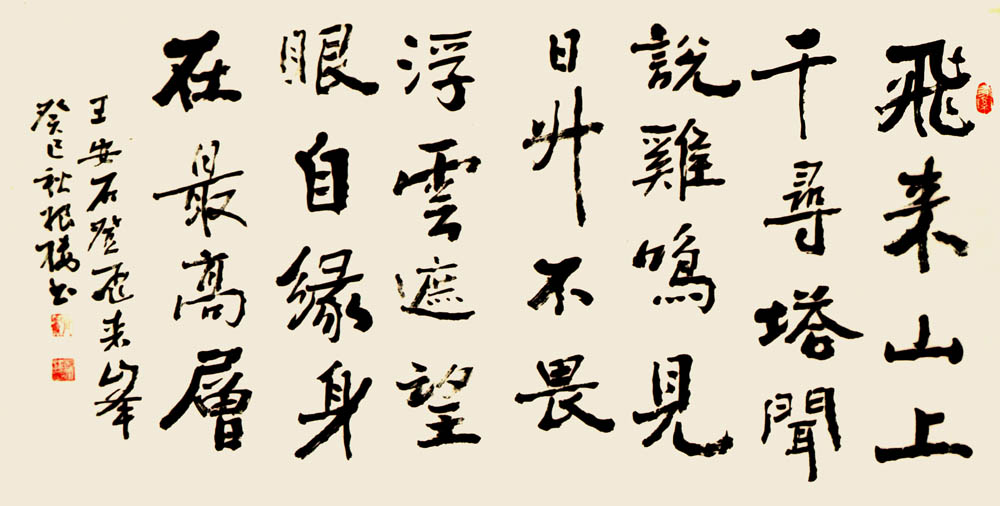 飛来山上
千尋塔聞
說雞鳴見
日升不畏
浮雲遮望
眼自緣身
在最高層
王安石登飛来峯
癸巳秋书